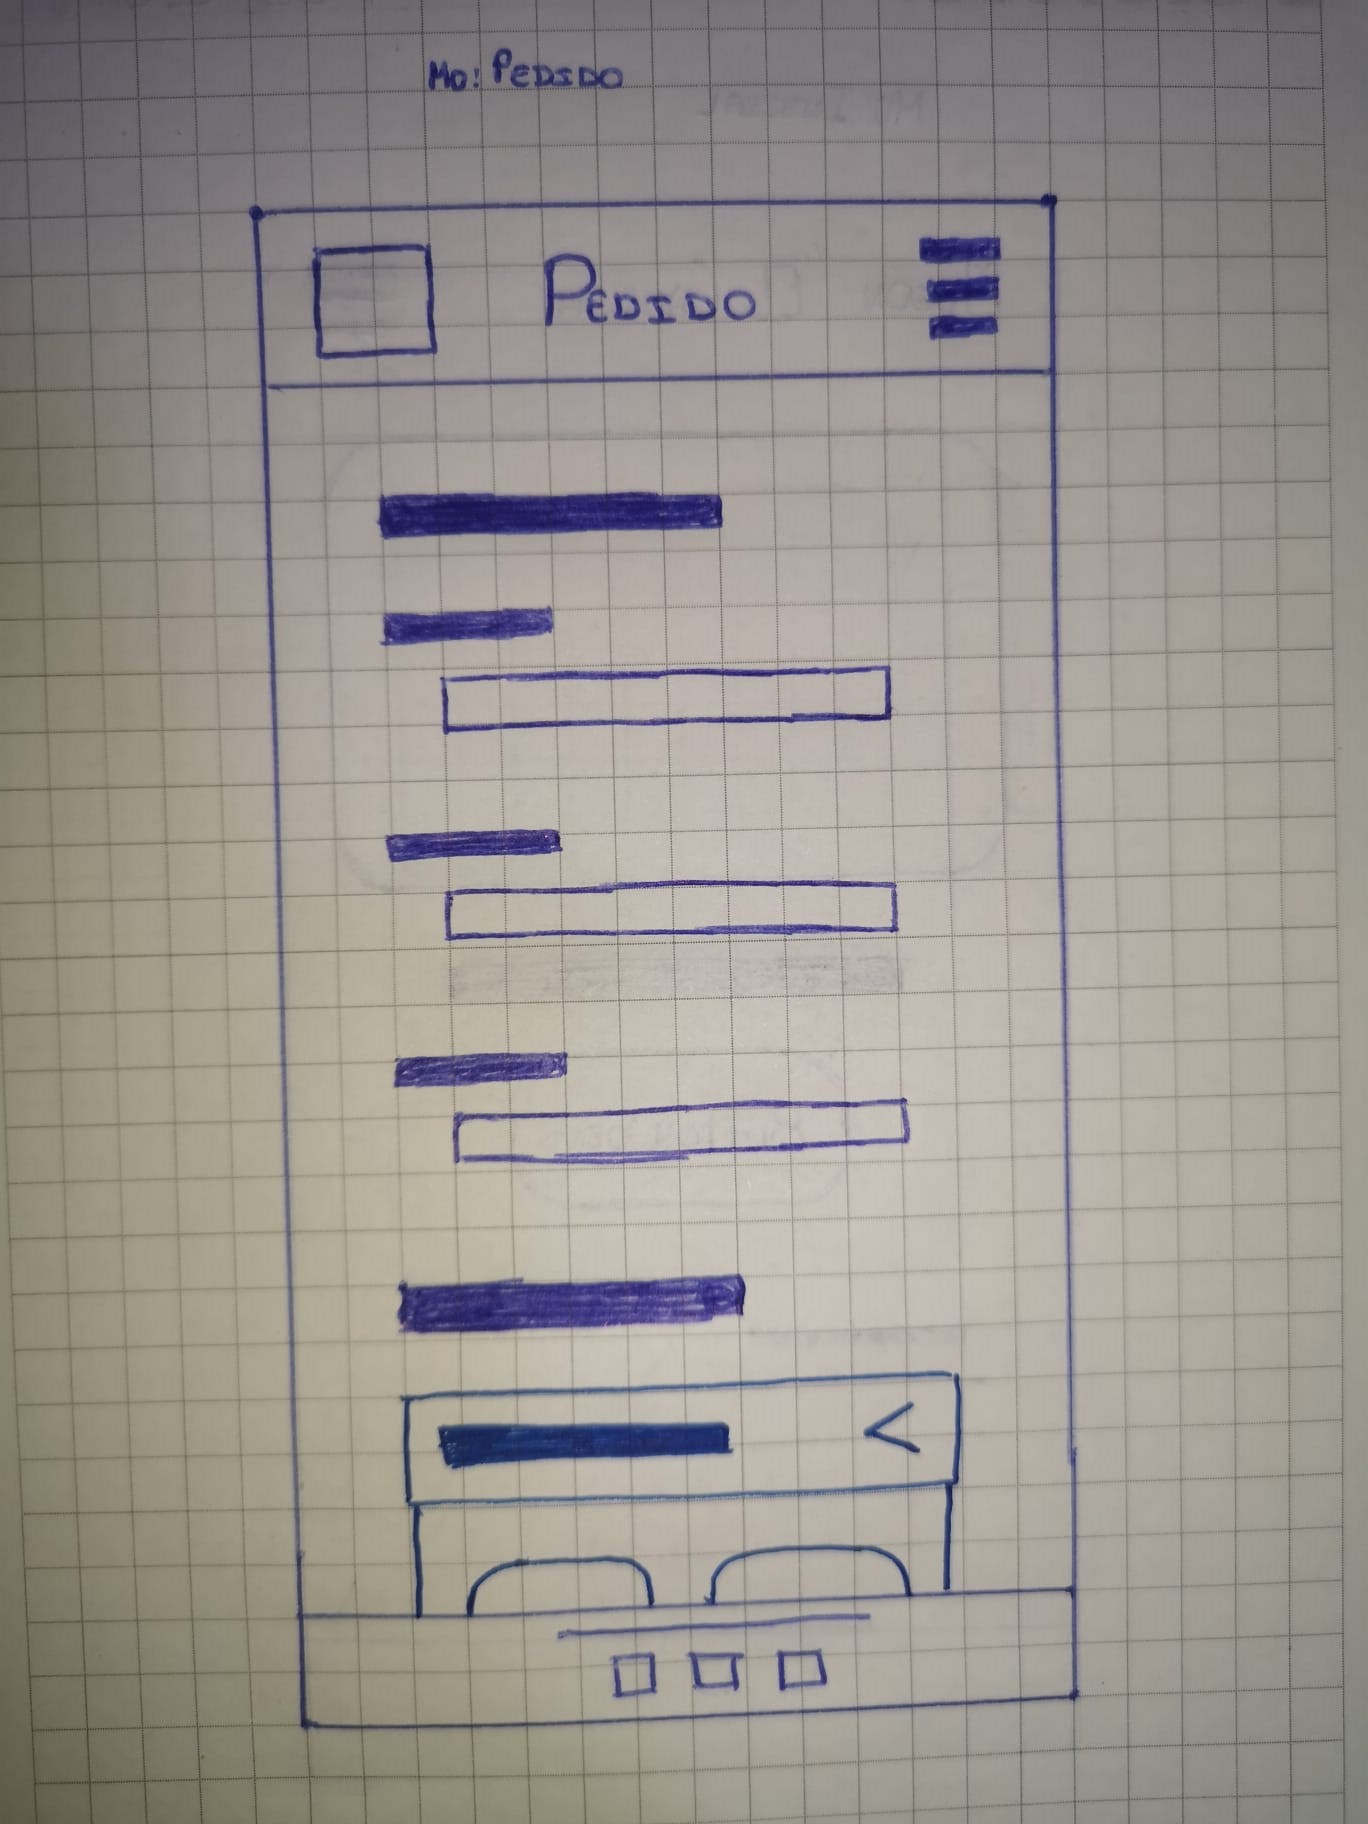 Mo: PEDIDO
PEDIDO